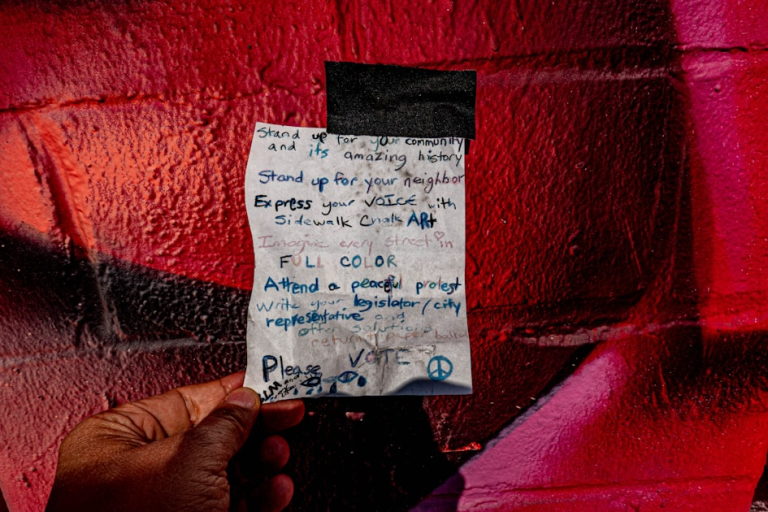 Stand up for your community
and its amazing history
Stand up for your neighbor
Express your VOICE with
Sidewalk Chalk ARt
Imagine every street in
FULL COLOR
Attend a peaceful protest
Write your legislator/city
representative and
offer solutions
return paper ballot
Please VOTE